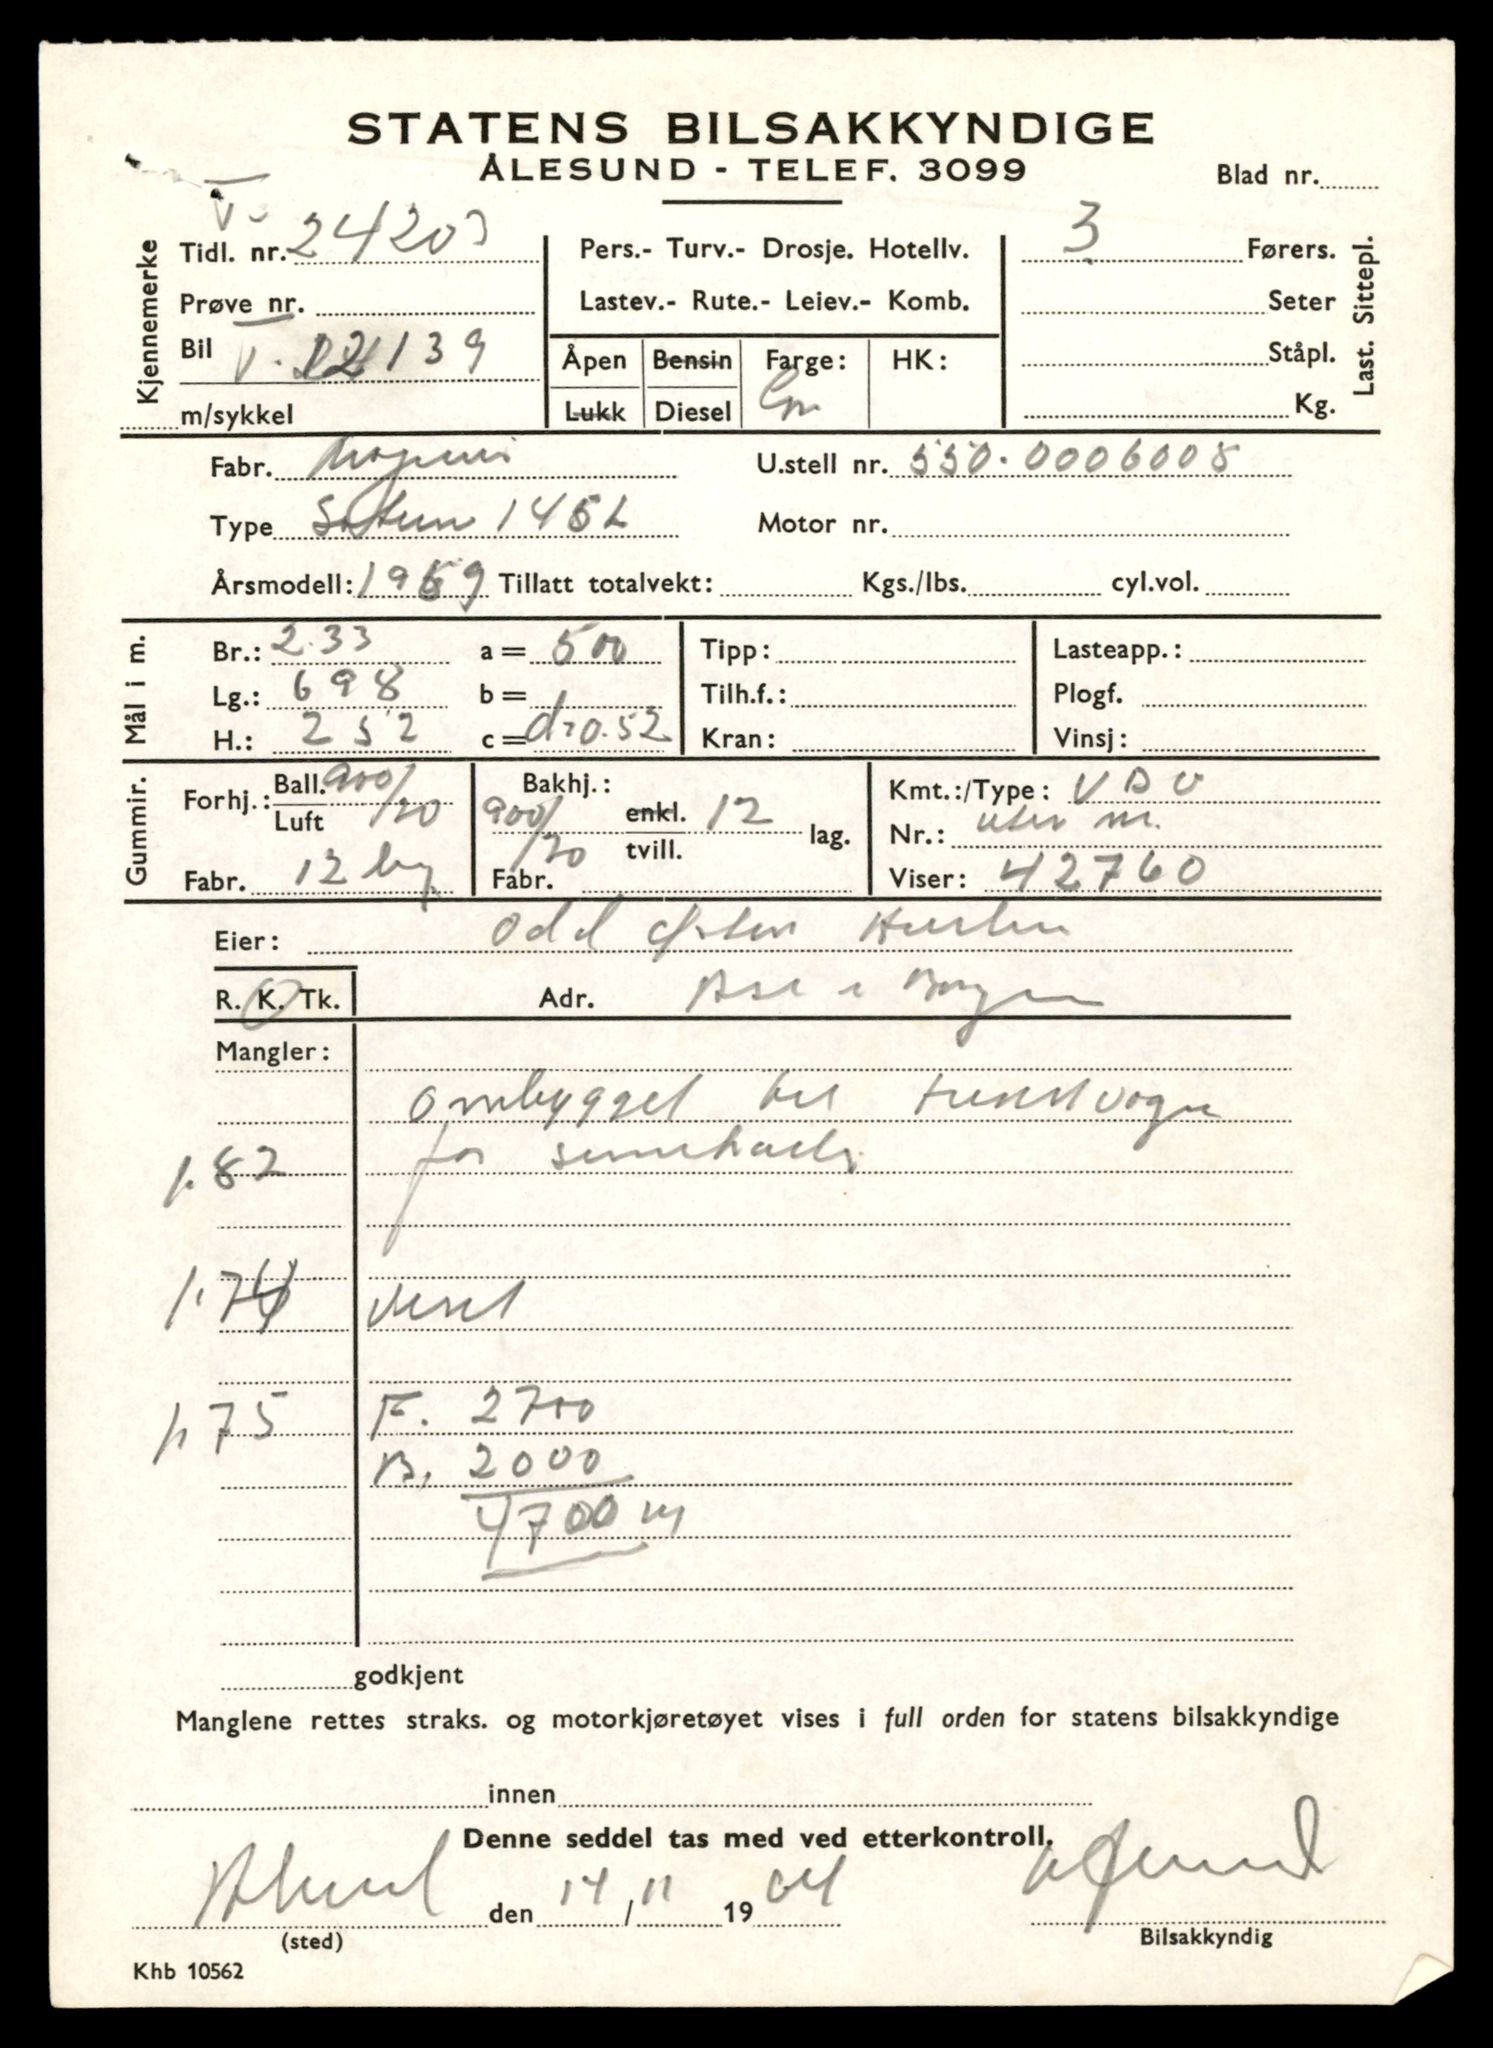 STATENS BILSAKKYNDIGE
ÅLESUND - TELEF. 3099
Blad nr.
Kjennemerke
Tidl. nr. T- 24203
Prøve nr.
Bil T. 12139
m/sykkel
Pers.- Turv.- Drosje. Hotellv.
Lastev.- Rute.- Leiev.- Komb.
Åpen Bensin Farge: HK:
Lukk Diesel
3 Førers.
Seter
Ståpl.
Kg.
Last. Sittepl.
Fabr. Magirus
U.stell nr. 550.0006008
Type Saturn 145L
Motor nr.
Årsmodell: 1959 Tillatt totalvekt: Kgs./lbs. cyl.vol.
Mål i m.
Br.: 2.33 a = 500
Lg.: 698 b =
H.: 252 c = d=0.52
Tipp:
Tilh.f.:
Kran:
Lasteapp.:
Plogf.
Vinsj:
Gummir.
Forhj.: Ball. 900/20
Luft
Fabr. 12 lag
Bakhj.:
900/20 enkl. 12 lag.
tvill.
Fabr.
Kmt.:/Type: VDO
Nr.: uten nr.
Viser: 42760
Eier: Odd
R. K. Tk.
Adr.
Mangler:
Ombygget til
for
1.82
1.74 vekt
1.75 F. 2700
B. 2000
4700
godkjent
Manglene rettes straks. og motorkjøretøyet vises i full orden for statens bilsakkyndige
innen
Denne seddel tas med ved etterkontroll.
Ålesund den 14/11 1964
(sted)
Bilsakkyndig
Khb 10562